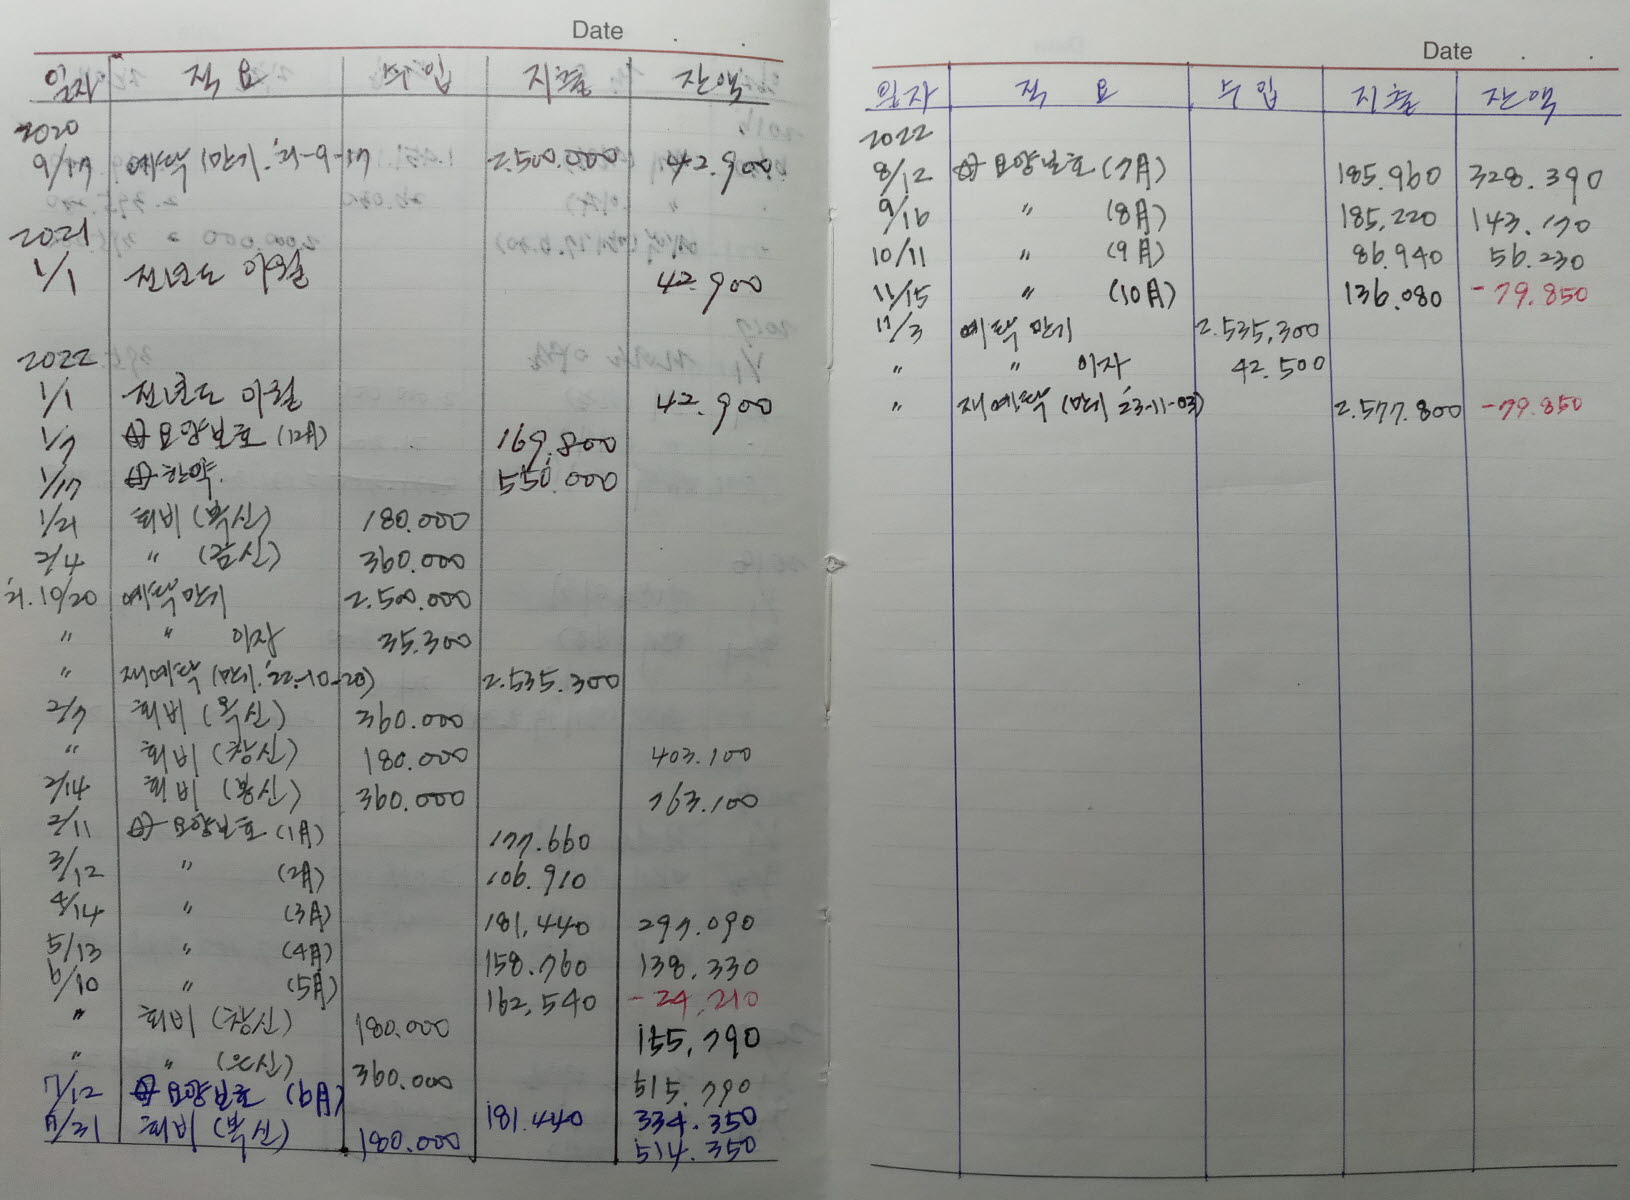 Date
일자 적요 수입 지출 잔액
2020
9/17 예탁 (만기. '21-9-17 2.500.000 42.900
2021
1/1 전년도 이월 42.900
2022
1/1 전년도 이월 42.900
1/7 母요양보호 (12月) 169.800
1/17 母한약. 550.000
1/21 회비 (복신) 180.000
2/4 〃 (금신) 360.000
'21.10/20 예탁만기 2.500.000
〃 〃 이자 35.300
〃 재예탁 (만기. '22-10-20) 2.535.300
2/7 회비 (옥신) 360.000
〃 회비 (창신) 180.000 403.100
2/14 회비 (봉신) 360.000 763.100
2/11 母 요양보호 (1月) 177.660
3/12 〃 (2月) 106.910
4/14 〃 (3月) 181,440 297.090
5/13 〃 (4月) 158.760 138.330
6/10 〃 (5月) 162,540 -24,210
〃 회비 (창신) 180.000 155,790
〃 〃 360.000 515.790
7/12 母요양보호 (6月) 181.440 334.350
회비 (복신) 180.000 514.350
Date
일자 적요 수입 지출 잔액
2022
8/12 母요양보호 (7月) 185.960 328.390
9/16 〃 (8月) 185,220 143.170
10/11 〃 (9月) 86.940 56.230
11/15 〃 (10月) 136.080 -79.850
11/3 예탁 만기 2.535,300
〃 〃 이자 42.500
〃 재예탁 (만기 '23-11-03) 2.577.800 -79.850